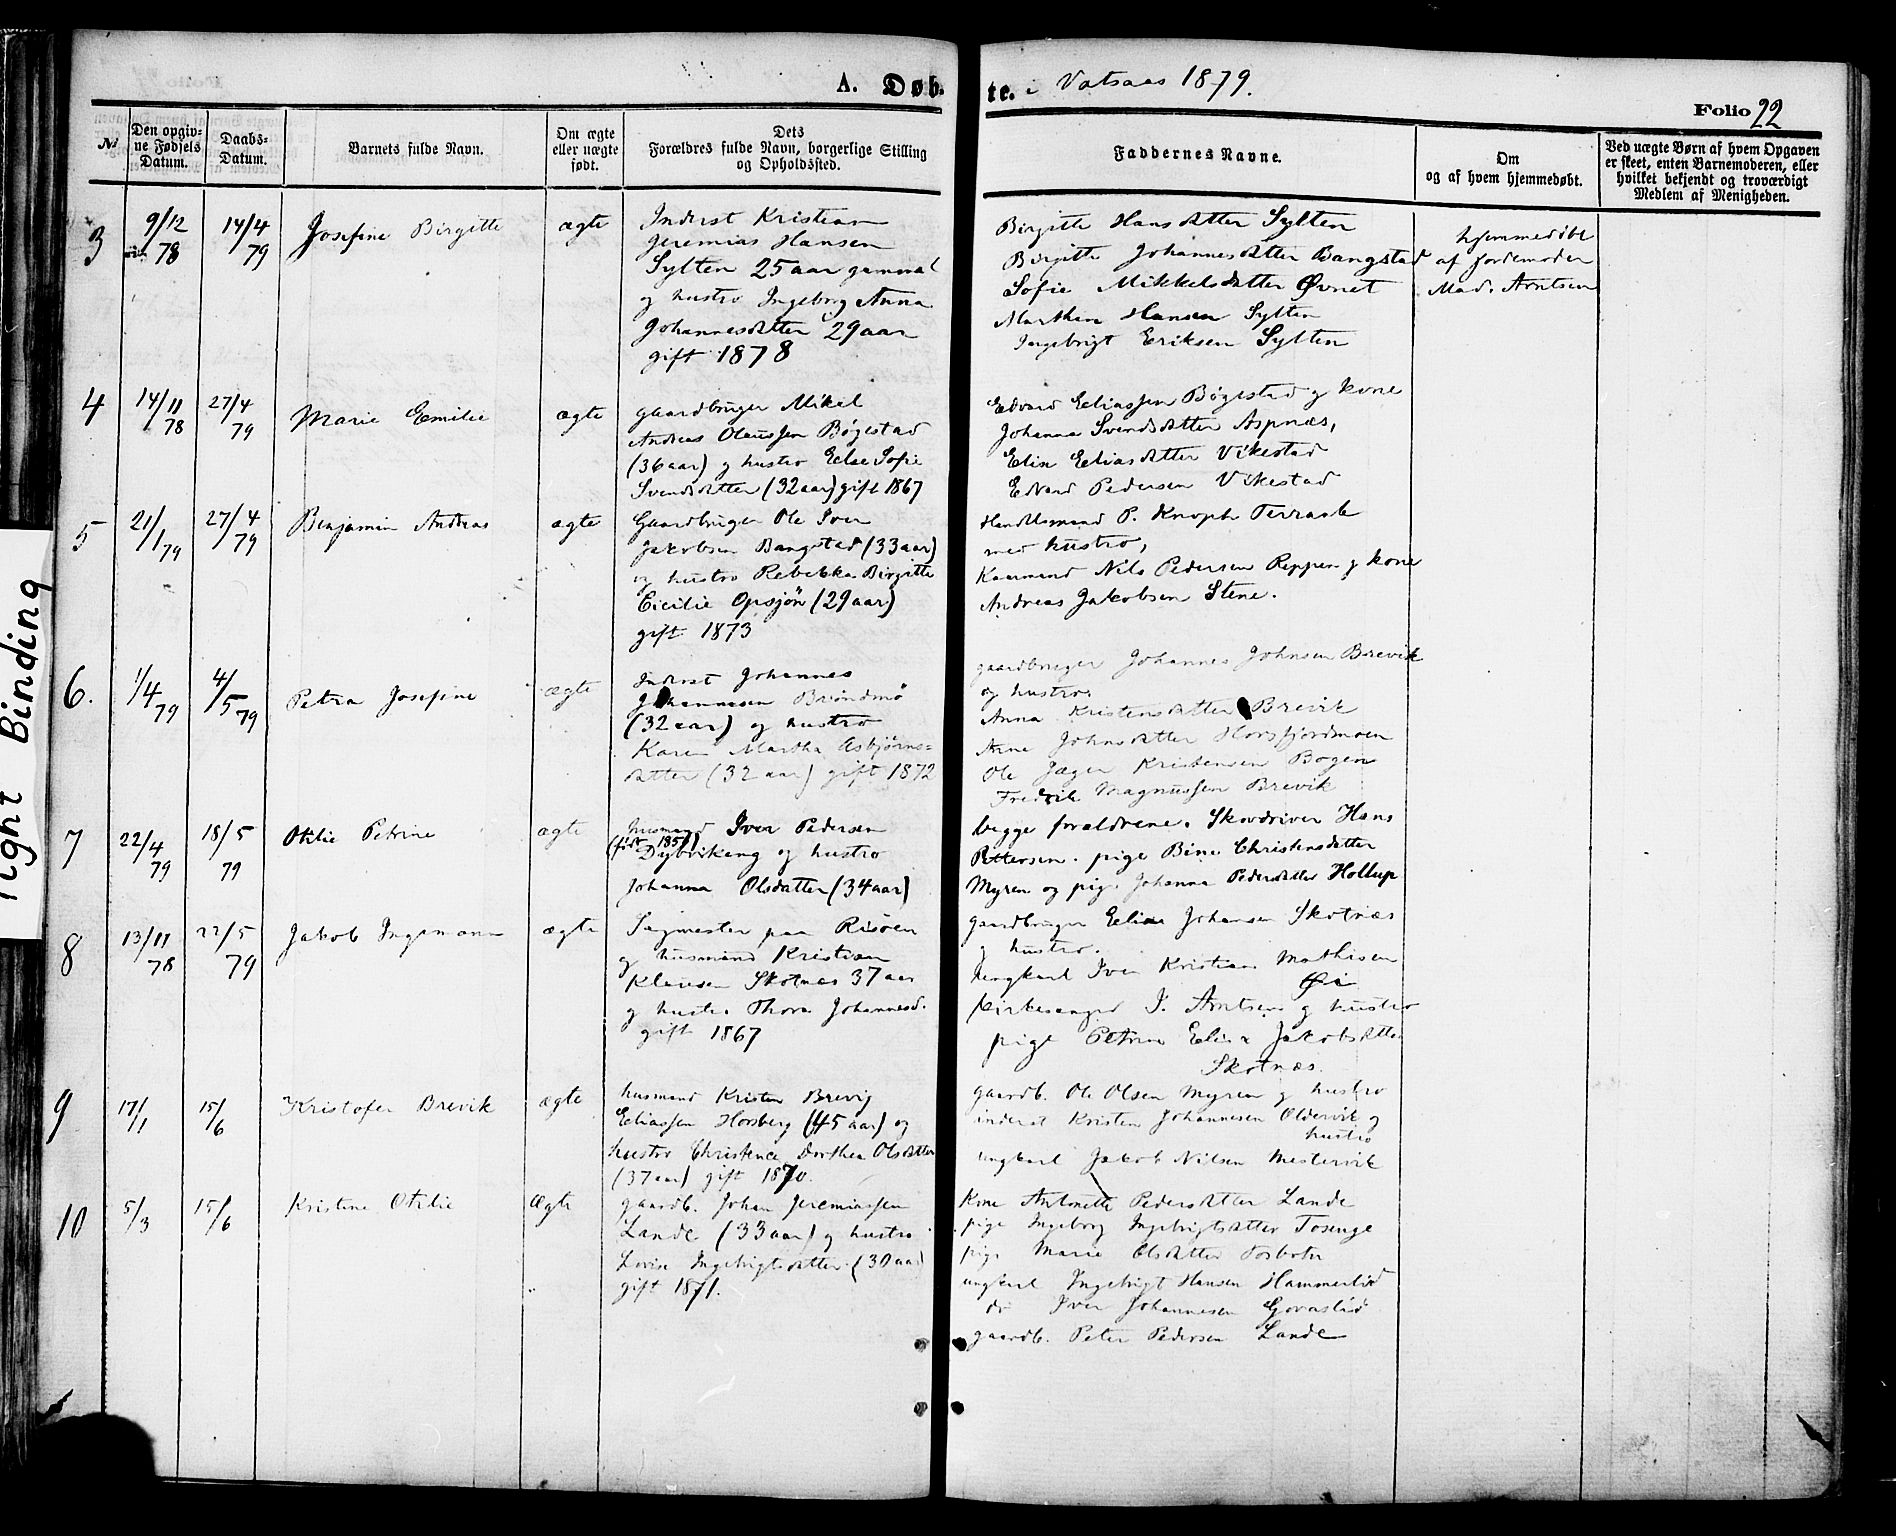 A. Døb-
te. i Vatsaas 1879.
Folio 22
№
Den opgiv-
ne Fødsels
Datum.
Daabs-
Datum.
Barnets fulde Navn.
Om ægte
eller uægte
født.
Dets
Forældres fulde Navn, borgerlige Stilling
og Opholdssted.
Faddernes Navne.
Om
og af hvem hjemmedøbt.
Ved uægte Børn af hvem Opgaven
er skeet, enten Barnemoderen, eller
hvilket bekjendt og troværdigt
Medlem af Menigheden.
3
9/12
78
14/4
79
Josefine Birgitte
ægte
Inderst Kristian
Jeremias Hansen
Sylten 25 aar gammal
og hustro Ingeborg Anna
Johannesdatter 29 aar
gift 1878
Birgitte Hansdatter Sylten
Birgitte Johannesdatter Bangstad
Sofie Mikkelsdatter Øvnet
Marthin Hansen Sylten
Ingebrigt Eriksen Sylten
hjemmedøbt
af Jordemoder
Mad. Arntsen
4
14/11
78
27/4
79
Marie Emilie
ægte
gaardbruger Mikal
Andreas Olaussen Bøgestad
(36 aar) og hustro Else Sofie
Svendsdatter (32 aar) gift 1867
Edvard Eliassen Bøgestad og kone
Johanna Svendsdatter Aspnæs,
Elin Eliasdatter Vikestad
Edvard Pedersen Vikestad
5
21/1 79
27/4
79
Benjamin Andreas
ægte
Gaardbruger Ole Iver
Jakobsen Bangstad (33 aar)
og hustro Rebekka Birgitte
Cicilie Opsjøn (29 aar)
gift 1873
Handelsmand P. Knoph Terraak
med hustro,
Kaarmand Nils Pedersen Reppen og kone
Andreas Jakobsen Stene.
6.
1/4 79
4/5 79
Petra Josefine
ægte
Inderst Johannes
Johannesen Brøndmo
(32 aar) og hustro
Karen Martha Asbjørns=
datter (32 aar) gift 1872
gaardbruger Johannes Johnsen Brevik
og hustro.
Anna Kristensdatter Brevik
Anne Johnsdatter Horsfjordmoen
Ole Jæger Kristensen Bogen
Fredrik Magnussen Brevik
7
22/4
79
18/5
79
Otilie Petrine
ægte
husmand Iver Pedersen
(født 1851)
Dybvikeng og hustro
Johanna Olsdatter (34 aar)
begge forældrene. Skovdriver Hans
Pettersen. pige Bine Christensdatter
Myren og pige Johanna Pedersdatter Hollup
8
13/11
78
22/5
79
Jakob Ingemann
ægte
Sagmester paa Risøen
og husmand Kristian
Klausen Skotnæs 37 aar
og hustro Thora Johannesd.
gift 1867
gaardbruger Elias Johansen Skotnæs
og hustro.
Ungkarl Iver Kristian Mathisen
Øie
Kirkesanger I. Arntsen og hustro
pige Petrine Elisa Jakobsdatter
Skotnæs.
9
17/1
15/6
Kristofer Brevik
ægte
husmand Kristen Brevig
Eliassen Horsberg (45 aar) og
hustro Christence Dorthea Olsdatter
(37 aar) gift 1870.
gaardb. Ole Olsen Myren og hustro
inderst Kristen Johannesen Oldervik og
hustro
ungkarl Jakob Nilsen Mestervik
10
5/3
15/6
Kristine Otilie
Ægte
gaardb. Johan Jeremiassen
Lande (33 aar) og hustro
Lovise Ingebrigtsdatter (30 aar)
gift 1871.
Kone Antonette Pedersdatter Lande
pige Ingeborg Ingebrigtsdatter Tosenge
pige Marie Olsdatter Tosbotn
ungkarl Ingebrigt Hansen Hammerlid
do Iver Johannesen Govaslid
gaardb. Peter Pedersen Lande
Tight Binding